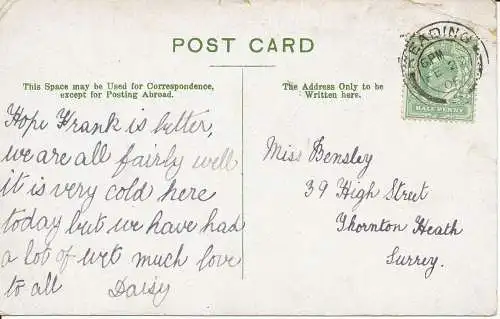 POST CARD
This Space may be Used for Correspondence,
except for Posting Abroad.
The Address Only to be
Written here.
READING
HALF PENNY
Hope Frank is better,
we are all fairly well
it is very cold here
today but we have had
a lot of wet much love
to all Daisy
Miss Bensley
39 High Street
Thornton Heath
Surrey.